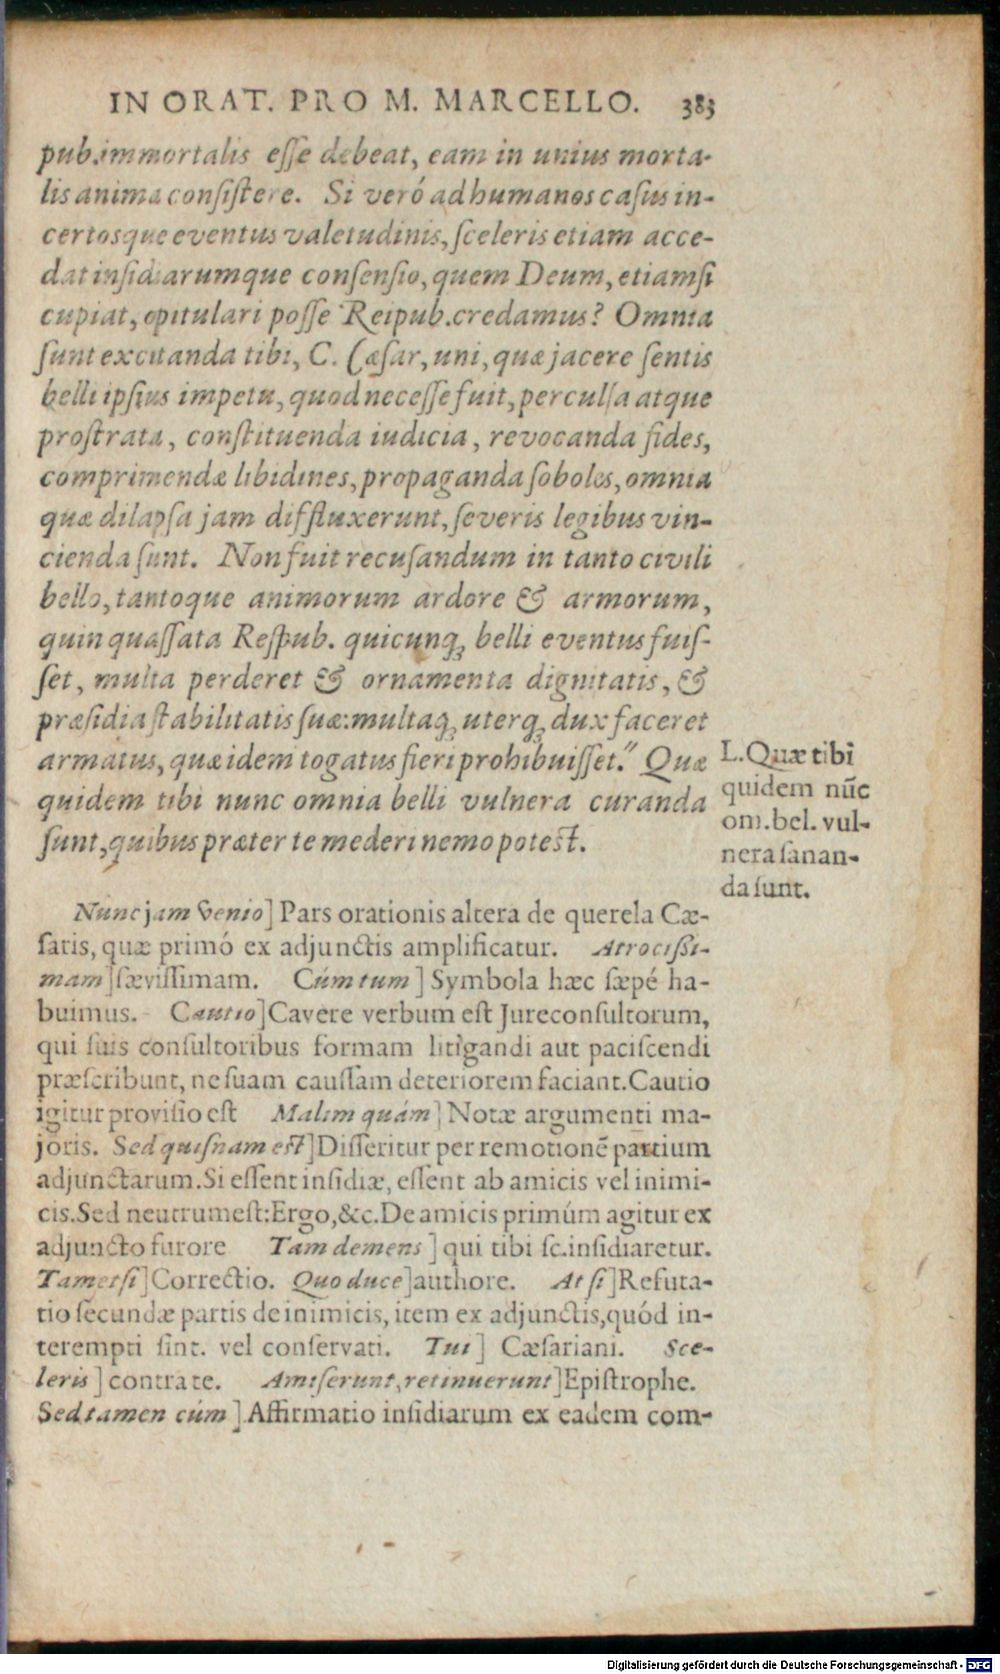 IN ORAT. PRO M. MARCELLO. 383
pub.immortalis eſſe debeat, eam in unius morta-
lis anima conſiſtere. Si veró ad humanos caſus in-
certosque eventus valetudinis, ſceleris etiam acce-
dat inſidiarumque conſenſio, quem Deum, etiamſi
cupiat, opitulari poſſe Reipub.credamus? Omnia
ſunt excitanda tibi, C. Cæſar, uni, quæ jacere ſentis
belli ipſius impetu, quod neceſſe fuit, perculſa atque
proſtrata, conſtituenda iudicia, revocanda fides,
comprimendæ libidines, propaganda ſoboles, omnia
quæ dilapſa jam diffluxerunt, ſeveris legibus vin-
cienda ſunt. Non fuit recuſandum in tanto civili
bello, tantoque animorum ardore & armorum,
quin quaſſata Reſpub. quicunq; belli eventus fuiſ-
ſet, multa perderet & ornamenta dignitatis, &
præſidia ſtabilitatis ſuæ: multaq; uterq; dux faceret
armatus, quæ idem togatus fieri prohibuiſſet." Quæ
quidem tibi nunc omnia belli vulnera curanda
ſunt, quibus præter te mederi nemo poteſt.
L. Quæ tibi
quidem nūc
om.bel. vul-
nera ſanan-
da ſunt.
Nunc jam venio] Pars orationis altera de querela Cæ-
ſaris, quæ primó ex adjunctis amplificatur. Atrociſſi-
mam] ſæviſſimam. Cúm tum] Symbola hæc ſæpé ha-
buimus. Cautio] Cavere verbum eſt Jureconſultorum,
qui ſuis conſultoribus formam litigandi aut paciſcendi
præſcribunt, ne ſuam cauſſam deteriorem faciant. Cautio
igitur proviſio eſt Malim quám] Notæ argumenti ma-
joris. Sed quiſnam eſt] Diſſeritur per remotionē partium
adjunctarum. Si eſſent inſidiæ, eſſent ab amicis vel inimi-
cis. Sed neutrum eſt: Ergo, &c. De amicis primúm agitur ex
adjuncto furore Tam demens] qui tibi ſc. inſidiaretur.
Tametſi] Correctio. Quo duce] authore. At ſi] Refuta-
tio ſecundæ partis de inimicis, item ex adjunctis, quód in-
terempti ſint. vel conſervati. Tui] Cæſariani. Sce-
leris] contra te. Amiſerunt, retinuerunt] Epiſtrophe.
Sed tamen cúm] Affirmatio inſidiarum ex eadem com-
Digitalisierung gefördert durch die Deutsche Forschungsgemeinschaft - DFG